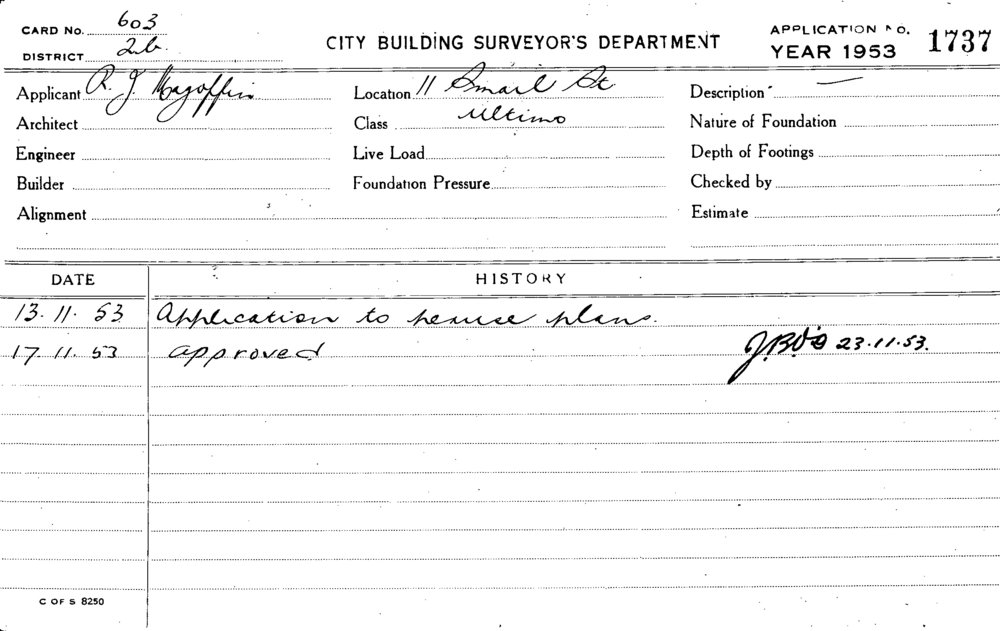 CARD No. 603
DISTRICT 2b.
CITY BUILDING SURVEYOR'S DEPARTMENT
APPLICATION NO.
YEAR 1953
1737
Applicant R. J. Magoffin
Location 11 Smail St
Description —
Architect
Class Ultimo
Nature of Foundation
Engineer
Live Load
Depth of Footings
Builder
Foundation Pressure
Checked by
Alignment
Estimate
DATE HISTORY
13.11.53 Application to peruse plans.
17.11.53 approved 23.11.53.
C OF S 8250